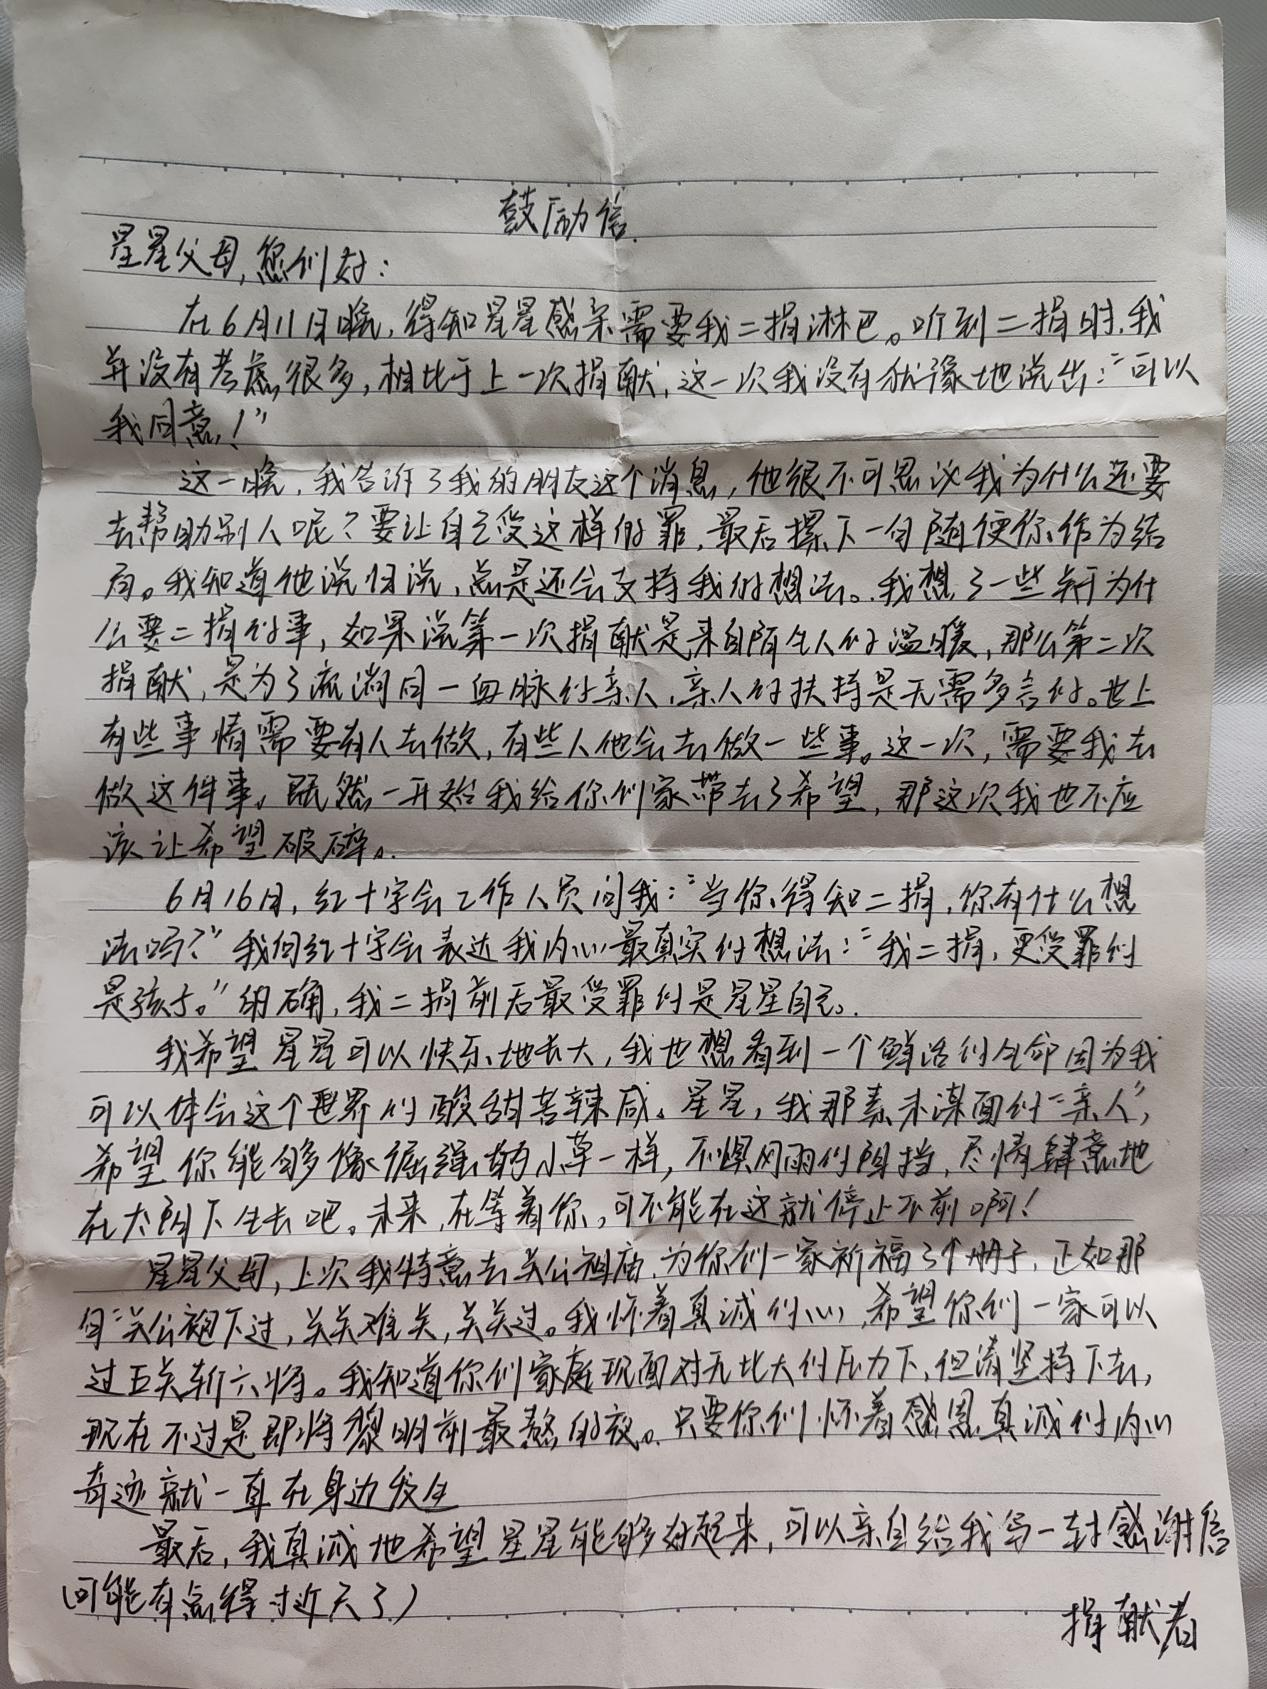 鼓励信.
星星父母,您们好:
在6月11日晚,得知星星感染需要我二捐淋巴。听到二捐时,我
并没有考虑很多,相比于上一次捐献,这一次我没有犹豫地说出:“可以
我同意!”
这一晚,我告诉了我的朋友这个消息,他很不可思议我为什么还要
去帮助别人呢?要让自己受这样的罪,最后撂下一句随便你作为结
局。我知道他说归说,总是还会支持我的想法。我想了一些关于为什
么要二捐的事,如果说第一次捐献是来自陌生人的温暖,那么第二次
捐献,是为了流淌同一血脉的亲人,亲人的扶持是无需多言的。世上
有些事情需要有人去做,有些人他会去做一些事。这一次,需要我去
做这件事。既然一开始我给你们家带去了希望,那这次我也不应
该让希望破碎。
6月16日,红十字会工作人员问我:“当你得知二捐,你有什么想
法吗?”我向红十字会表达我内心最真实的想法:“我二捐,更受罪的
是孩子。”的确,我二捐前后最受罪的是星星自己.
我希望星星可以快乐地长大,我也想看到一个鲜活的生命因为我
可以体会这个世界的酸甜苦辣咸。星星,我那素未谋面的“亲人”,
希望你能够像倔强的小草一样,不惧风雨的阻挡,尽情肆意地
在太阳下生长吧。未来,在等着你,可不能在这就停止不前啊!
星星父母,上次我特意去关公祖庙,为你们一家祈福了个册子,正如那
句“关公袍下过,关关难关,关关过。我怀着真诚的心,希望你们一家可以
过五关斩六将。我知道你们家庭现面对无比大的压力下,但请坚持下去,
现在不过是即将黎明前最熬的夜。只要你们怀着感恩真诚的内心
奇迹就一直在身边发生
最后,我真诚地希望星星能够好起来,可以亲自给我写一封感谢信
(可能有点得寸进尺了)
捐献者